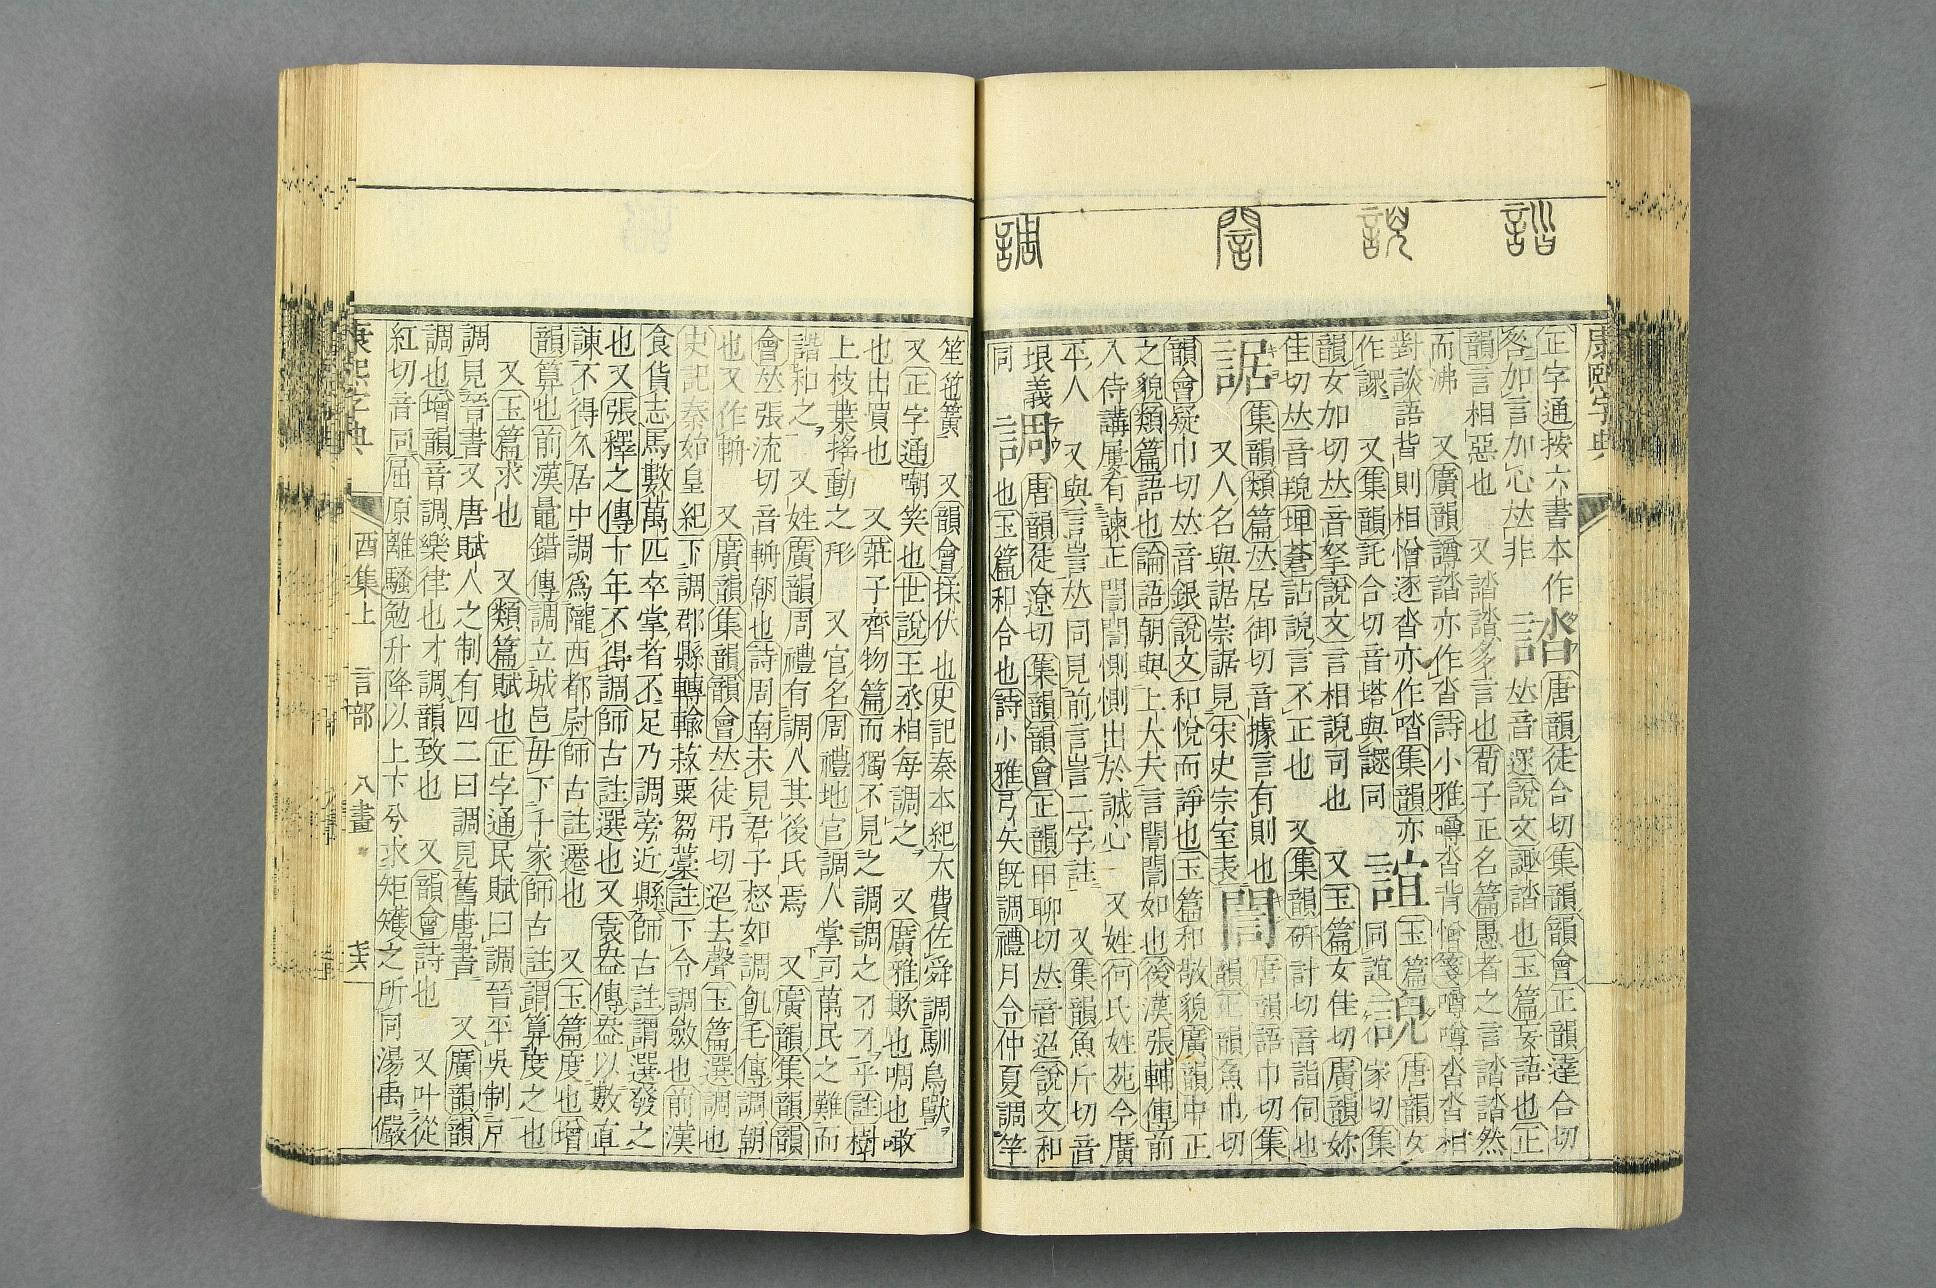 誻 𧧝 誾 調
康熙字典
正字通按六書本作
誻
唐韻徒合切集韻韻會正韻達合切
𠀤音遝說文謎誻也玉篇妄語也正
韻言相惡也 又誻誻多言也荀子正名篇愚者之言誻誻然
而沸 又廣韻譐誻亦作沓詩小雅噂沓背憎箋噂噂沓沓相
對談語背則相憎逐沓亦作喒集韻亦
作譅 又集韻託合切音塔與譅同
誼
玉篇
同誼
唐韻女
家切集
韻女加切𠀤音拏說文言相說司也 又玉篇女佳切廣韻妳
佳切𠀤音羺埤蒼詀說言不正也 又集韻研計切音詣伺也
誾
唐韻語巾切集
韻正韻魚巾切
䛯
集韻類篇𠀤居御切音據言有則也
又人名與䛯崇䛯見宋史宗室表
韻會疑巾切𠀤音銀說文和悅而諍也玉篇和敬貌廣韻中正
之貌類篇語也論語朝與上大夫言誾誾如也後漢張輔傳前
入侍講屢有諫正誾誾惻惻出於誠心 又姓何氏姓苑今廣
平人 又與言訔𠀤同見前言訔二字註 又集韻魚斤切音
垠義
同
調
唐韻徒遼切集韻韻會正韻田聊切𠀤音迢說文和
也玉篇和合也詩小雅弓矢旣調禮月令仲夏調竽
笙箎簧 又韻會揉伏也史記秦本紀大費佐舜調馴鳥獸
又正字通嘲笑也世說王丞相每調之 又廣雅欺也啁也噉
也出買也 又莊子齊物篇而獨不見之調調之刁刁乎註樹
上枝葉搖動之形 又官名周禮地官調人掌司萬民之難而
諧和之 又姓廣韻周禮有調人其後氏焉 又廣韻集韻韻
會𠀤張流切音輈朝也詩周南未見君子惄如調飢毛傳調朝
也又作輖 又廣韻集韻韻會𠀤徒弔切迢去聲玉篇選調也
史記秦始皇紀下調郡縣轉輸菽粟芻藁註下令調斂也前漢
食貨志馬數萬匹卒掌者不足乃調旁近縣師古註謂選發之
也又張釋之傳十年不得調師古註選也又袁盎傳盎以數直
諫不得久居中調爲隴西都尉師古註遷也 又玉篇度也增
韻算也前漢鼂錯傳調立城邑毋下千家師古註謂算度之也
又玉篇求也 又類篇賦也正字通民賦曰調晉平吳制戶
調見晉書又唐賦人之制有四二曰調見舊唐書 又廣韻韻
調也增韻音調樂律也才調韻致也 又韻會詩也 又叶從
紅切音同屈原離騷勉升降以上下兮求矩矱之所同湯禹儼
康熙字典 酉集上 言部 八畫